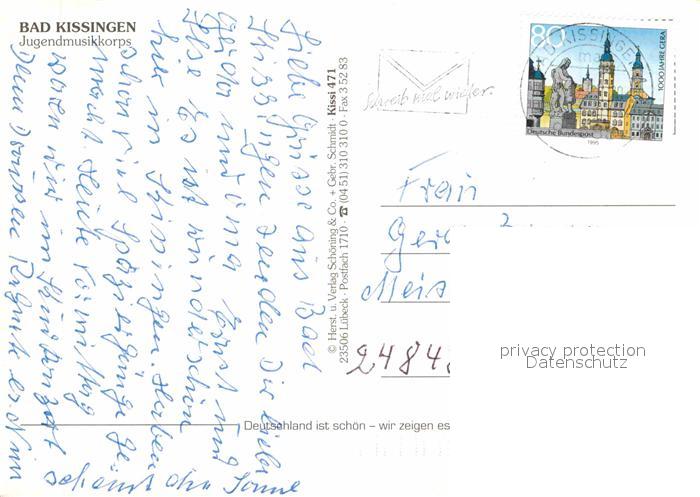 BAD KISSINGEN
Jugendmusikkorps
Liebe Grüsse aus Bad
Kissingen senden Dir liebe
Gerda und Oma Ernst und
Ilse Es ist wunderschön
hier in Kissingen. Haben
schon viel Spaziergänge ge-
macht. Heute Vormittag
waren wir im
Denn draussen
scheint die Sonne
© Herst. u. Verlag Schöning & Co. + Gebr. Schmidt · Kissi 471
23506 Lübeck · Postfach 1710 · ☎ (04 51) 310 310 0 · Fax 3 52 83
Schreib mal wieder.
KISSINGEN
80
1000 JAHRE GERA
Deutsche Bundespost
1995
Frau
Ger
Meis
2484
privacy protection
Datenschutz
Deutschland ist schön – wir zeigen es